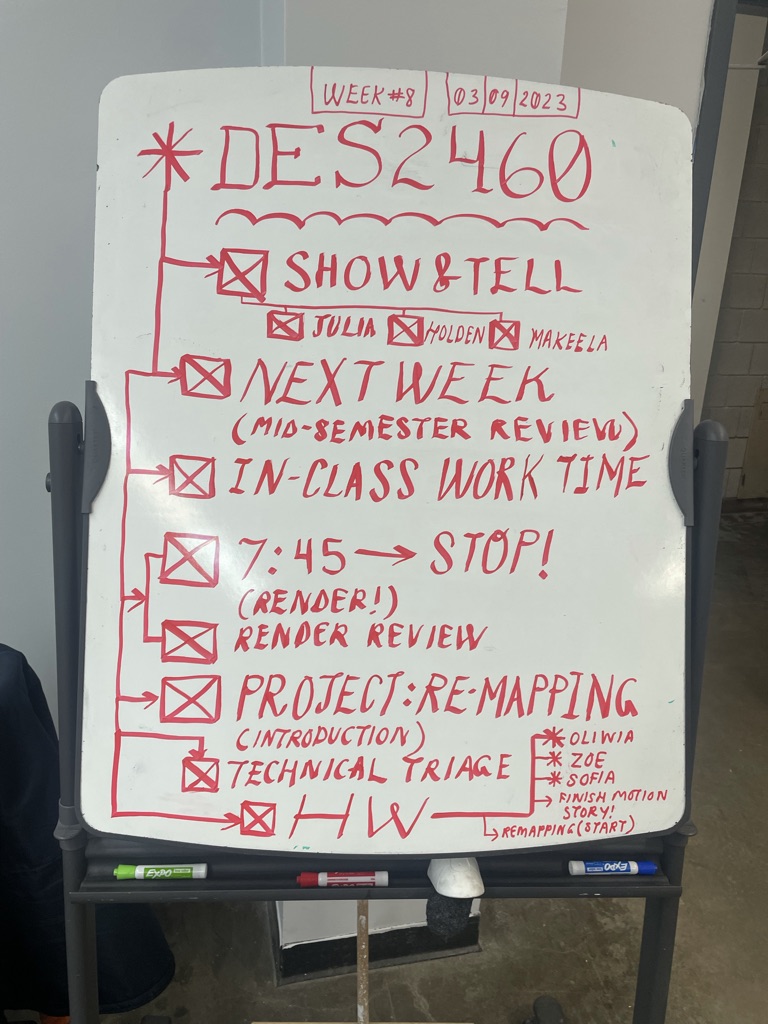 WEEK #8 03 09 2023
DES2460
SHOW & TELL
JULIA HOLDEN MAKEELA
NEXT WEEK
(MID-SEMESTER REVIEW)
IN-CLASS WORK TIME
7:45 → STOP!
(RENDER!)
RENDER REVIEW
PROJECT: RE-MAPPING
(INTRODUCTION)
TECHNICAL TRIAGE
HW
OLIWIA
ZOE
SOFIA
FINISH MOTION
STORY!
REMAPPING (START)
EXPO
EXPO